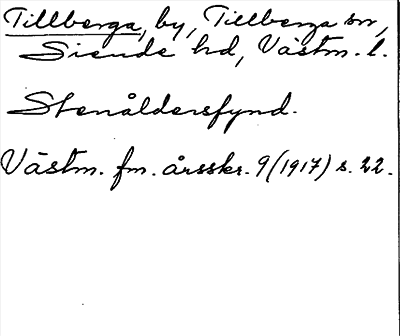 Tillberga, by, Tillberga sn,
Siende hd, Västm. l.
Stenåldersfynd.
Västm. fm. årsskr. 9 (1917) s. 22.